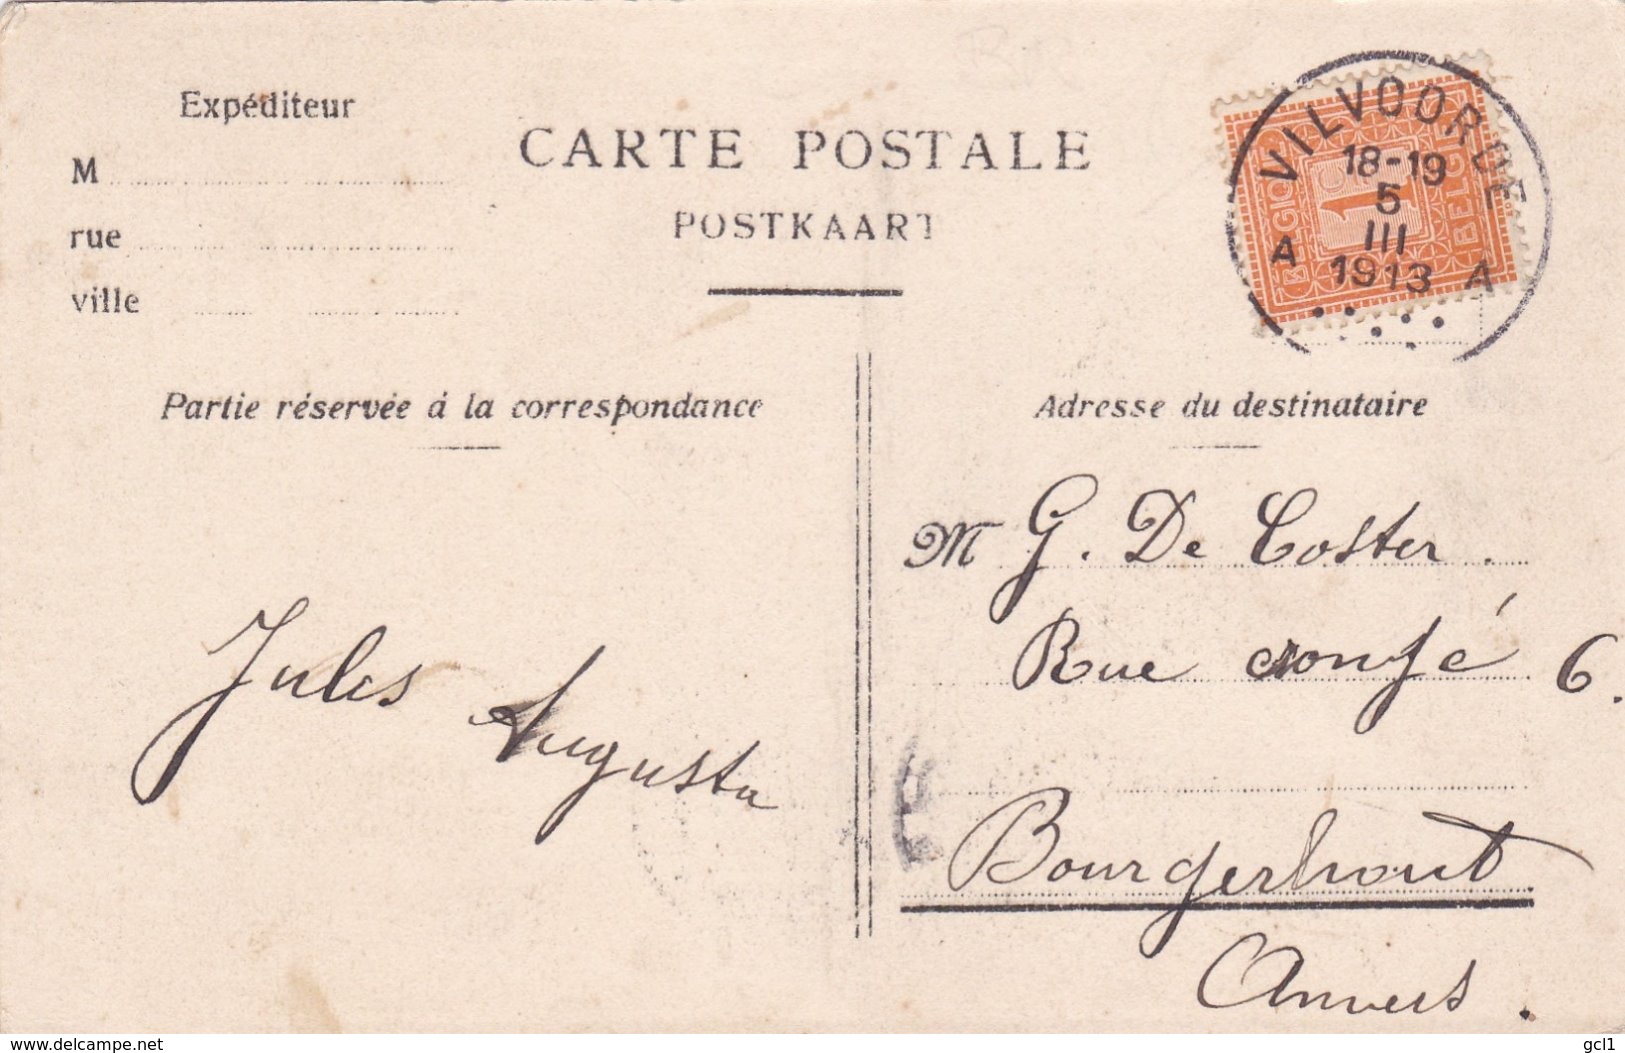 Expéditeur
M
rue
ville
CARTE POSTALE
POSTKAART
VILVOORDE
18-19
5
III
1913
A A
1
BELGIE
Partie réservée à la correspondance
Adresse du destinataire
Jules Augusta
M G. De Coster.
Rue 6.
Bourgerhout
Anvers.
www.delcampe.net
gcl1